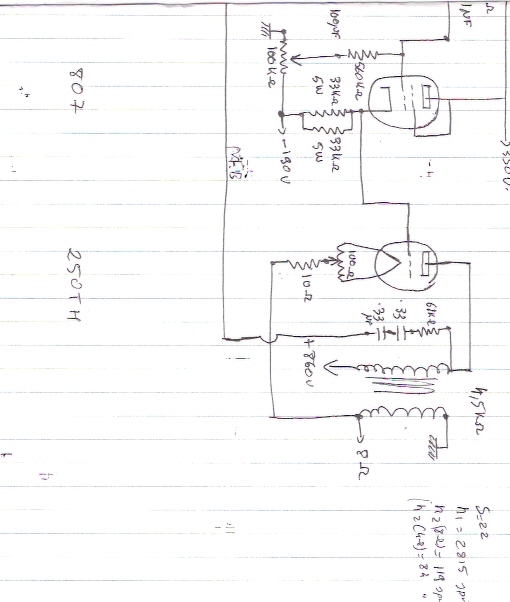 Ω
1μF
350V
100μF
100KΩ
560KΩ
33KΩ
5W
33KΩ
5W
-180V
807
100Ω
10Ω
250TH
61KΩ
.33
.33
μF
+860V
4,5KΩ
8Ω
S=22
n1 = 2815
n2(8Ω) = 119
n2(4Ω) = 84 "